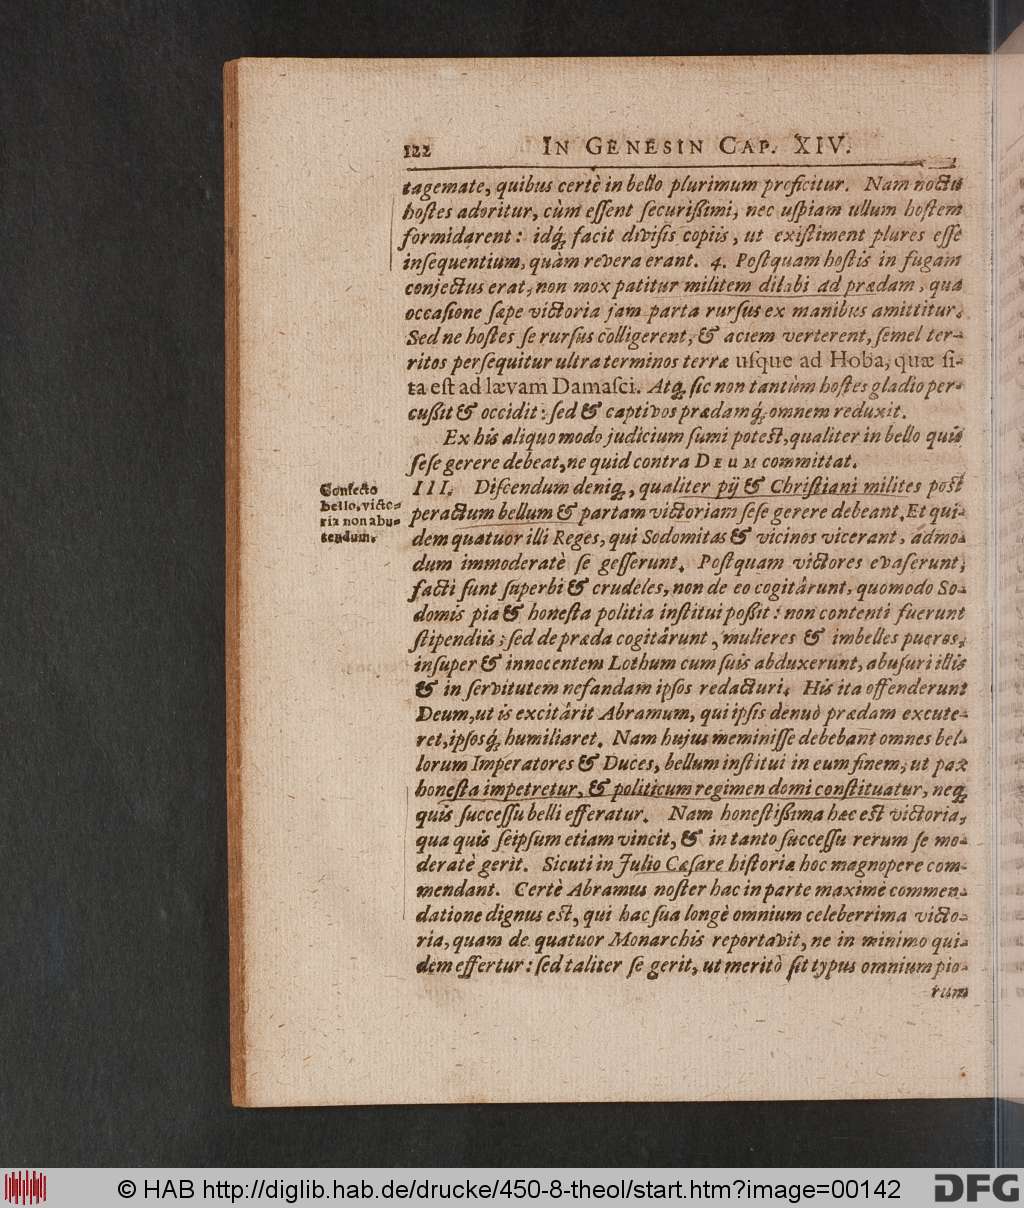 122 IN GENESIN CAP. XIV.
tagemate, quibus certè in bello plurimum proficitur. Nam noctu
hostes adoritur, cùm eſſent ſecurißimi, nec uſpiam ullum hoſtem
formidarent: idq́; facit diviſis copiis, ut exiſtiment plures eſſe
inſequentium, quàm revera erant. 4. Poſtquam hoſtis in fugam
conjectus erat, non mox patitur militem dilabi ad prædam, qua
occaſione ſæpe victoria jam parta rurſus ex manibus amittitur.
Sed ne hoſtes ſe rurſus colligerent, & aciem verterent, ſemel ter-
ritos perſequitur ultra terminos terræ uſque ad Hoba, quæ ſi-
ta eſt ad lævam Damaſci. Atq́; ſic non tantùm hoſtes gladio per-
cußit & occidit: ſed & captivos prædamq́; omnem reduxit.
Ex his aliquo modo judicium ſumi poteſt, qualiter in bello quis
ſeſe gerere debeat, ne quid contra DEUM committat.
Confecto
bello, victo-
ria non abu-
tendum.
III. Diſcendum deniq́;, qualiter pij & Chriſtiani milites poſt
peractum bellum & partam victoriam ſeſe gerere debeant. Et qui-
dem quatuor illi Reges, qui Sodomitas & vicinos vicerant, admo-
dum immoderatè ſe geſſerunt. Poſtquam victores evaſerunt,
facti ſunt ſuperbi & crudeles, non de eo cogitârunt, quomodo So-
domis pia & honeſta politia inſtitui poßit: non contenti fuerunt
ſtipendiis; ſed de præda cogitârunt, mulieres & imbelles pueros,
inſuper & innocentem Lothum cum ſuis abduxerunt, abuſuri illis
& in ſervitutem nefandam ipſos redacturi. His ita offenderunt
Deum, ut is excitârit Abramum, qui ipſis denuò prædam excute-
ret, ipſosq́; humiliaret. Nam hujus meminiſſe debebant omnes bel-
lorum Imperatores & Duces, bellum inſtitui in eum finem, ut pax
honeſta impetretur, & politicum regimen domi conſtituatur, neq́;
quis ſucceſſu belli efferatur. Nam honeſtißima hæc eſt victoria,
qua quis ſeipſum etiam vincit, & in tanto ſucceſſu rerum ſe mo-
deratè gerit. Sicuti in Julio Cæſare hiſtoriæ hoc magnopere com-
mendant. Certè Abramus noſter hac in parte maximè commen-
datione dignus eſt, qui hac ſua longè omnium celeberrima victo-
ria, quam de quatuor Monarchis reportavit, ne in minimo qui-
dem effertur: ſed taliter ſe gerit, ut meritò ſit typus omnium pio-
rum
© HAB http://diglib.hab.de/drucke/450-8-theol/start.htm?image=00142
DFG